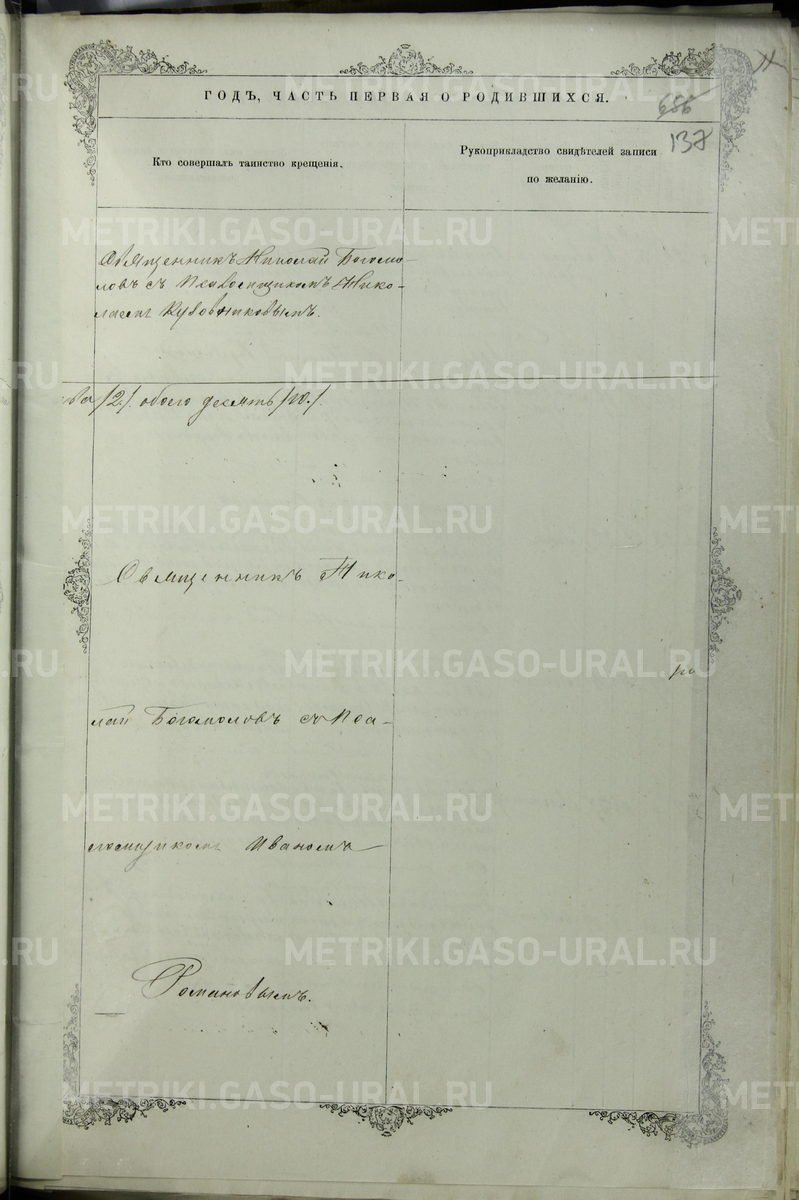 ГОДЪ, ЧАСТЬ ПЕРВАЯ О РОДИВШИХСЯ.
686
137
Кто совершалъ таинство крещенія.
Рукоприкладство свидѣтелей записи
по желанію.
Священникъ Николай Богомо-
ловъ съ Псаломщикомъ Нико-
лаемъ
/2/. обоего десять /10./
Священникъ Нико-
лай Богомоловъ съ Пса-
ломщикомъ Иваномъ
Романовымъ.
METRIKI.GASO-URAL.RU